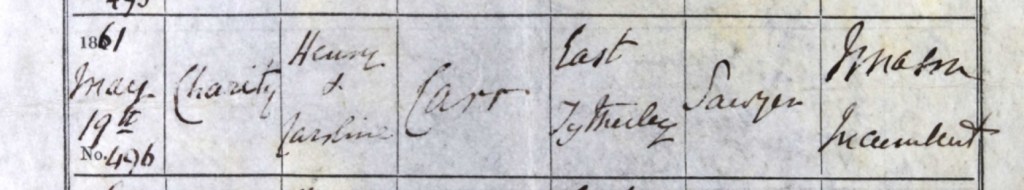 1861
May
19th
No. 496
Charity
Henry
&
Caroline
Carr
East
Tytherley
Sawyer
Incumbent